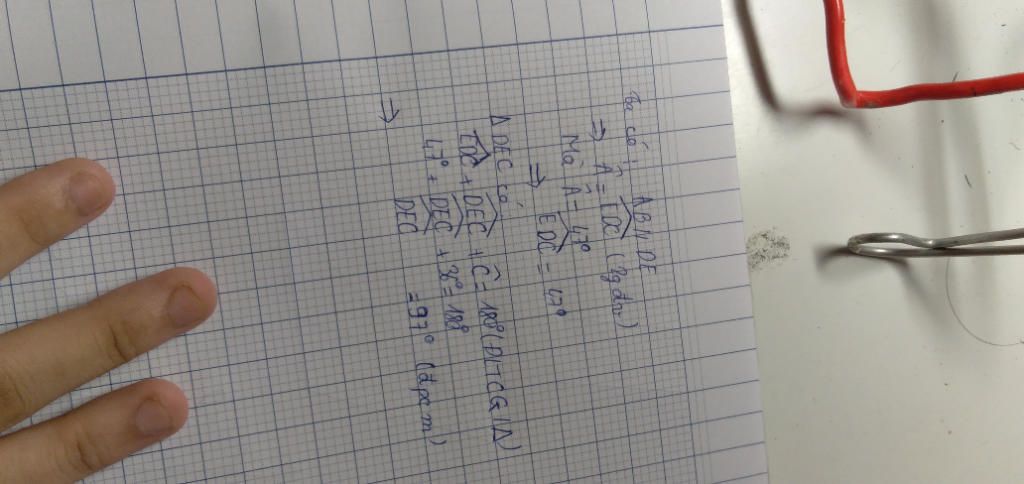 Ta có: AB // DE
⇒ Â = EDC (2g đv)
Mà Â = 47°
⇒ EDC = 47°
Δ DEC có:
EDC + DEC + Ĉ = 180° (Đl-CG 1Δ)
47° + DEC + 38° = 180°
⇒ DEC = 97° (đpcm)